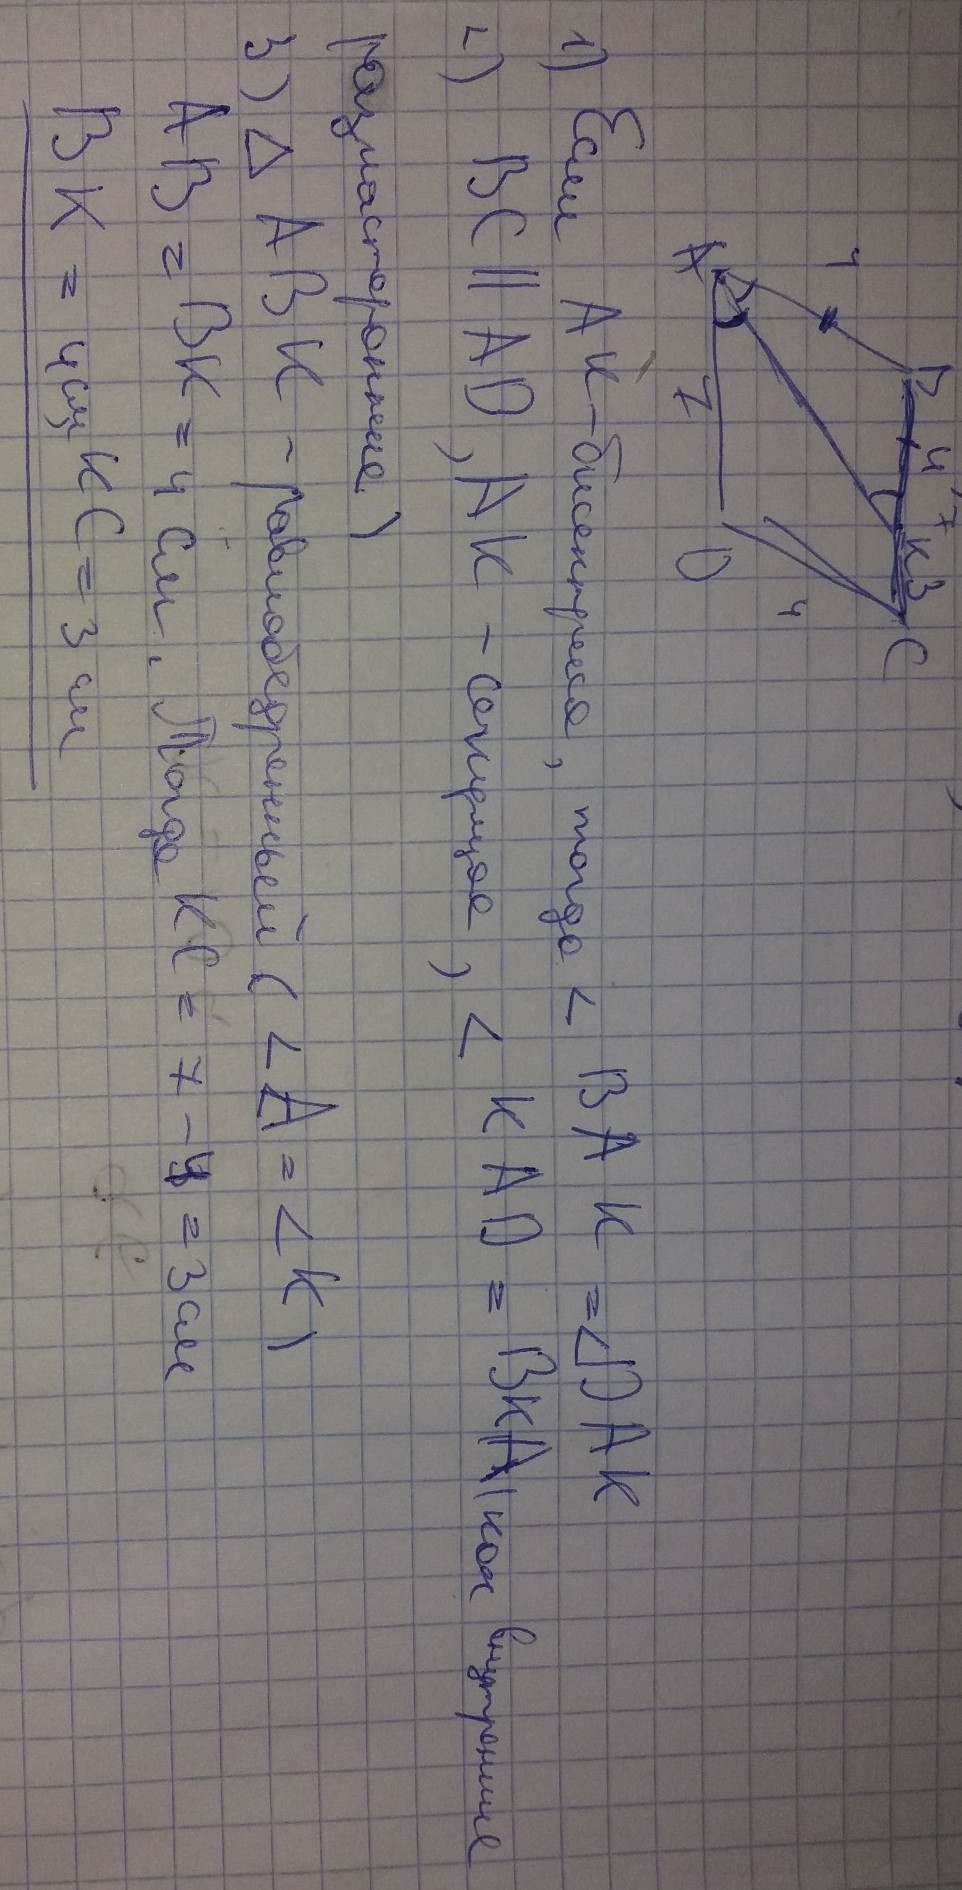 4
B
4
7
K
3
C
A
7
D
4
1) Если AK - биссектриса, тогда < BAK = ∠DAK
2) BC || AD, AK - секущая, < KAD = BKA (как внутренние
разносторонние)
3) △ ABK - равнобедренный (∠A = ∠K)
AB = BK = 4 см. Тогда KC = 7 - 4 = 3 см
BK = 4см, KC = 3 см